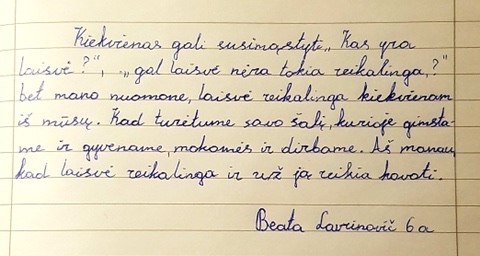 Kiekvienas gali susimąstyti „Kas yra
laisvė?", „gal laisvė nėra tokia reikalinga,?"
bet mano nuomone, laisvė reikalinga kiekvienam
iš mūsų. Kad turėtume savo šalį, kurioje gimsta-
me ir gyvename, mokomės ir dirbame. Aš manau,
kad laisvė reikalinga ir už ją reikia kovoti.
Beata Lavrinovič 6a